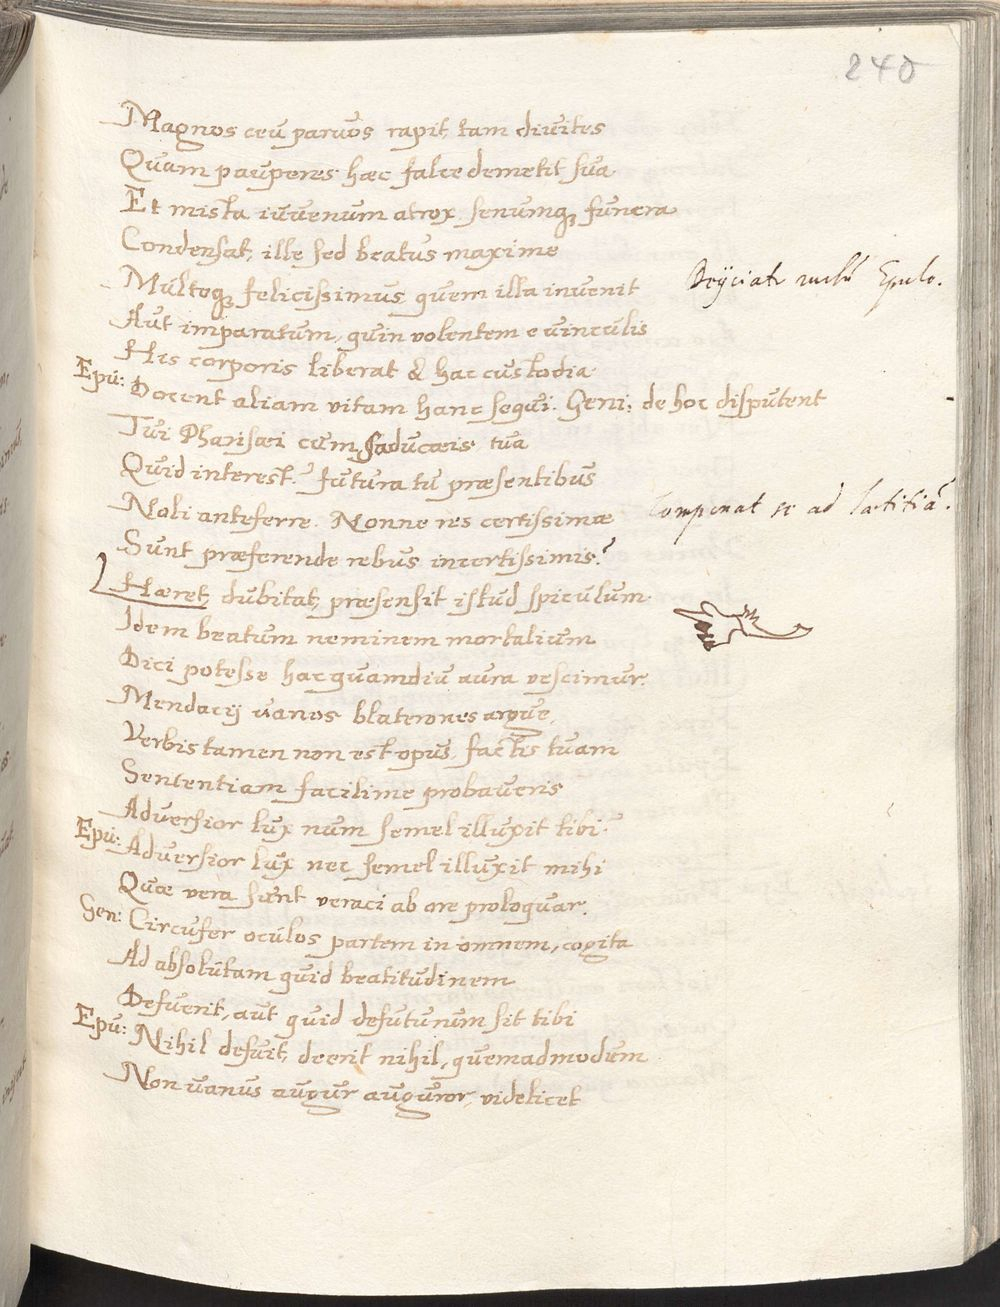 240
Magnos ceu paruos rapit, tam diuites
Quam pauperes hæc falce demetit sua
Et mista iuuenum atrox senumq; funera
Condensat, ille sed beatus maxime
Multoq; felicissimus quem illa inuenit
Deijciat Epulo.
Aut imparatum, quin volentem e uinculis
His corporis liberat & hac custodia
Epu: Docent aliam vitam hanc sequi. Geni: de hoc disputent
Tui Pharisæi cum saducæis, tua
Quid interest? futura tu præsentibus
Noli anteferre. Nonne res certissimæ
Componat se ad lætitiã.
Sunt præferende rebus incertissimis?
Hæret, dubitat, præsensit istud spiculum
Idem beatum neminem mortalium
Dici potesse hac quamdiu aura vescimur
Mendacij uanos blaterones argue,
Verbis tamen non est opus, factis tuam
Sententiam facilime probaueris
Aduersior lux num semel illuxit tibi
Epu: Aduersior lux nec semel illuxit mihi
Quæ vera sunt veraci ab ore prologuar.
Gen: Circufer oculos partem in omnem, cogita
Ad absolutam quid beatitudinem
Defuerit, aut quid defuturum sit tibi
Epu: Nihil defuit, deerit nihil, quemadmodum
Non uanus augur auguror, videlicet